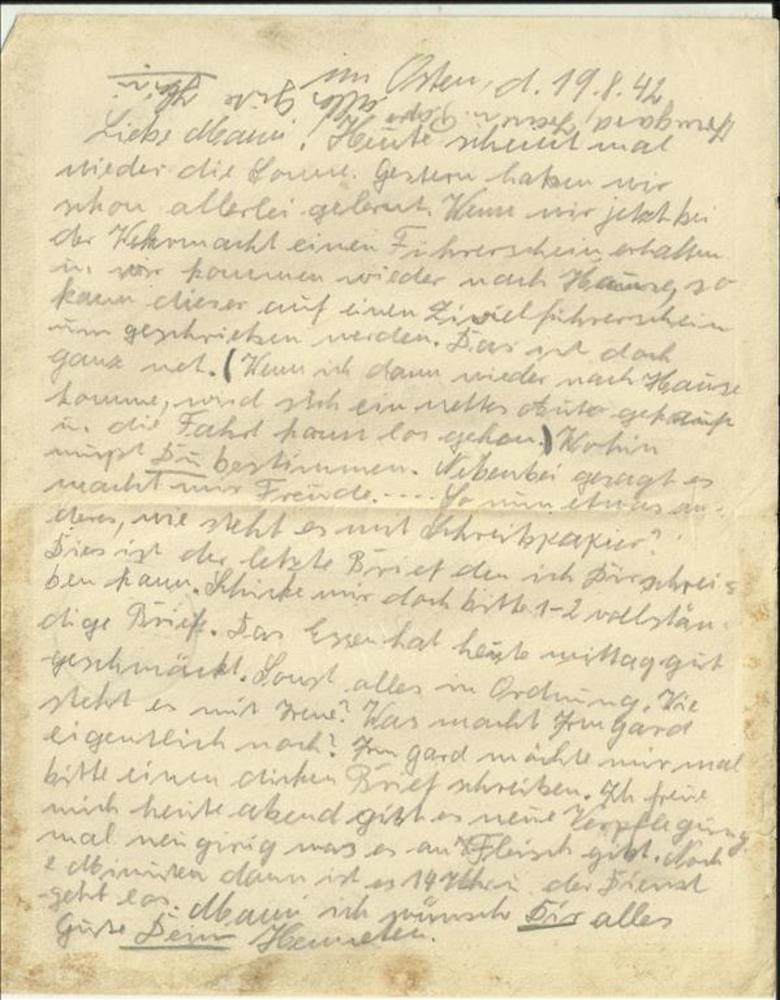 im Osten, d. 19.8.42
Liebe Mami! Heute scheint mal
wieder die Sonne. Gestern haben wir
schon allerlei gelernt. Wenn wir jetzt bei
der Wehrmacht einen Führerschein erhalten
u. wir kommen wieder nach Hause, so
kann dieser auf einen Zivielführerschein
umgeschrieben werden. Das ist doch
ganz net. (Wenn ich dann wieder nach Hause
komme, wird sich ein nettes Auto gekauft
u. die Fahrt kann los gehen.) Wohin
mußt Du bestimmen. Nebenbei gesagt es
macht mir Freude.---- So nun etwas an-
deres, wie steht es mit Schreibpapier?
Dies ist der letzte Brief den ich Dir schrei-
ben kann. Schicke mir doch bitte 1-2 vollstän-
dige Briefe. Das Essen hat heute mittag gut
geschmeckt. Sonst alles in Ordnung. Wie
steht es mit Irene? Was macht Irmgard
eigentlich noch? Irmgard möchte mir mal
bitte einen dicken Brief schreiben. Ich freue
mich heute abend gibt es neue Verpflegung
mal neugirig was es an Fleisch gibt. Noch
Minuten dann ist es 14 Uhr u. der Dienst
geht los. Mami ich wünsche Dir alles
Gute Dein
alles Gute
Irmgard,